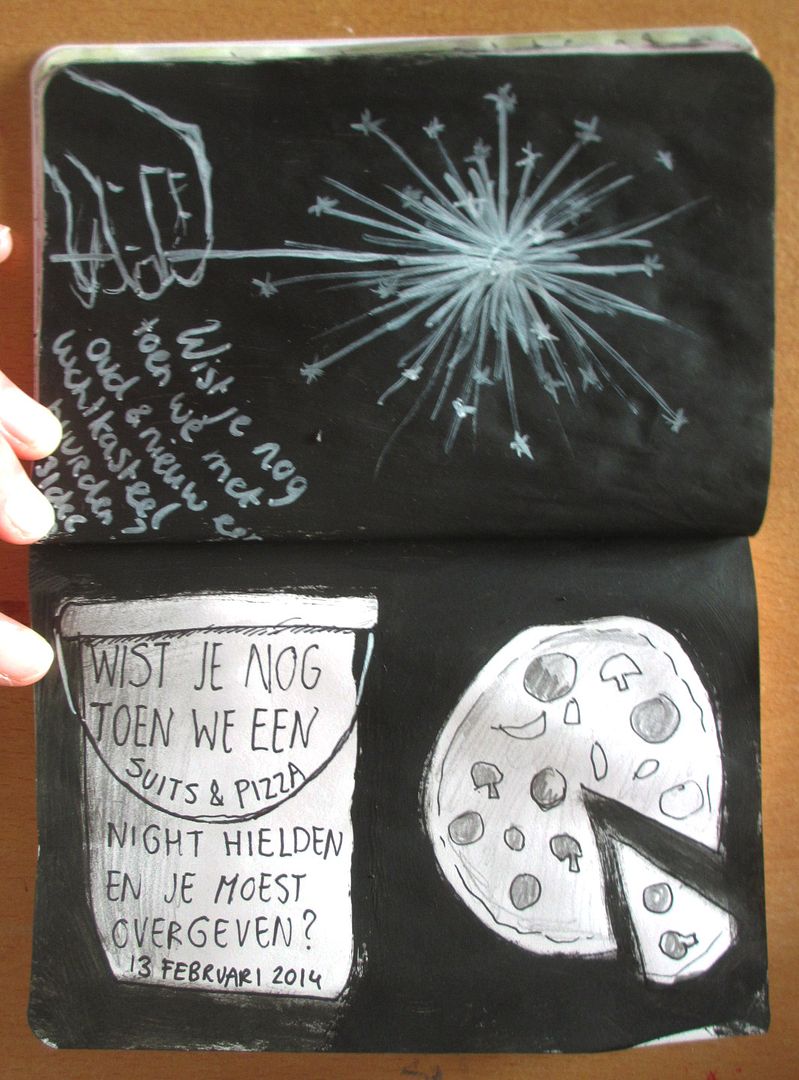 Wist je nog
toen we met
oud & nieuw een
luchtkasteel
huurden?
31 dec
WIST JE NOG
TOEN WE EEN
SUITS & PIZZA
NIGHT HIELDEN
EN JE MOEST
OVERGEVEN?
13 FEBRUARI 2014